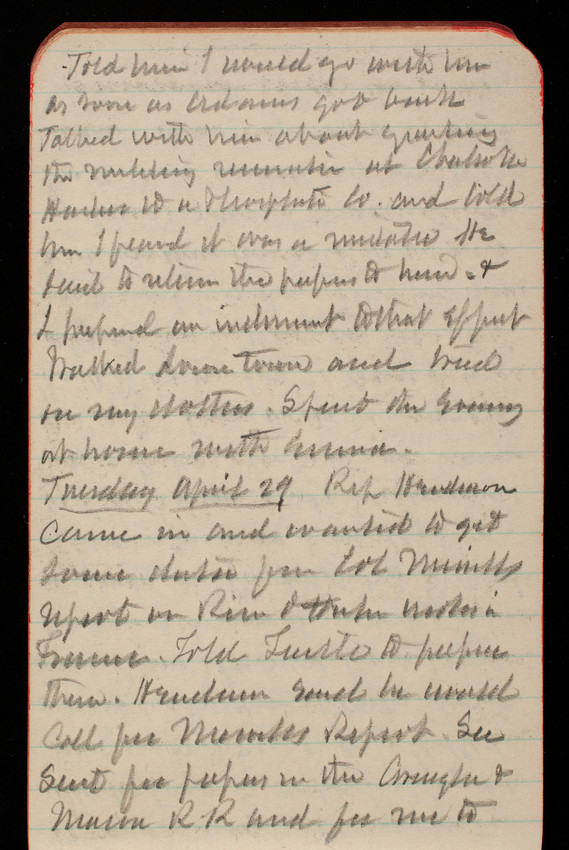 Told him I would go with him
as soon as Adams got back
Talked with him about granting
the military reservation at Charlotte
Harbor to a Phosphate Co. and told
him I feared it was a mistake He
said to return the papers to him &
I prepared an indorsment to that effect
Walked down town and tried
on my clothes. Spent the Evening
at home with Emma.
Tuesday April 29 Rep Henderson
came in and wanted to get
some data from Col
report on River & Harbor works in
France. Told Tuttle to prepare
them. Henderson said he would
Call for Report. Sec
Sent for papers in the &
Macon R R and for me to